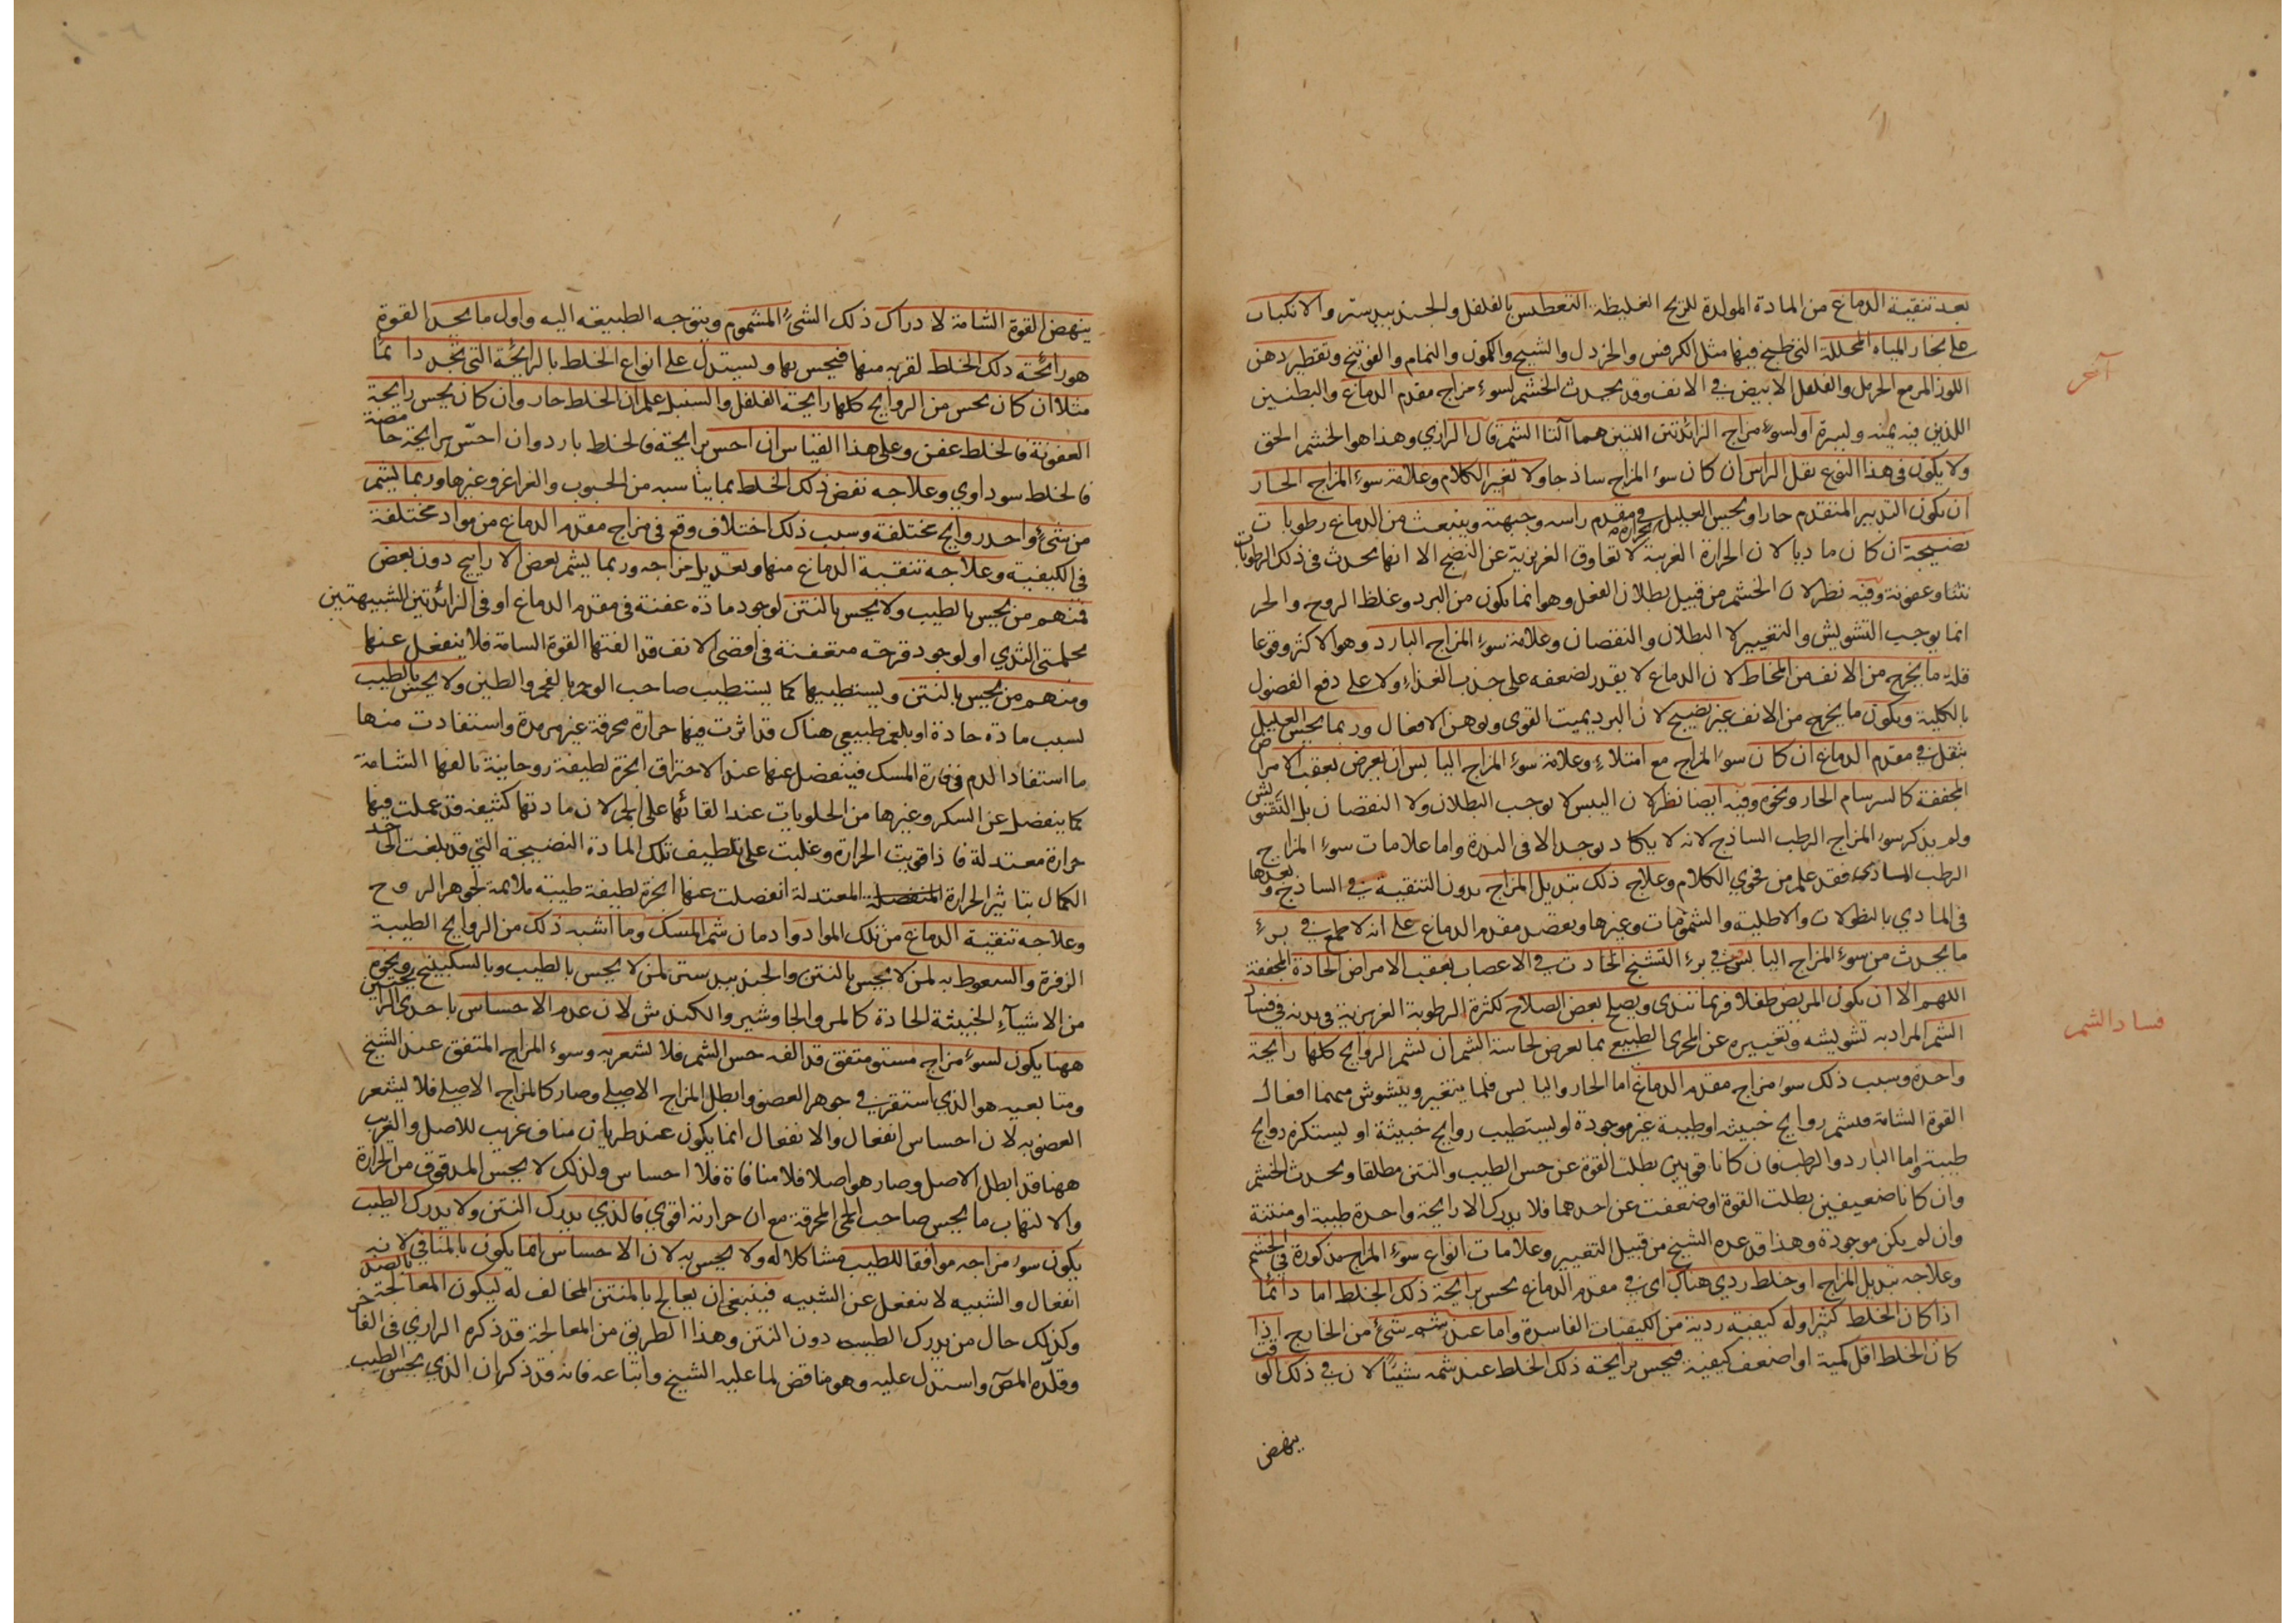 بعد تنقية الدماغ من المادة المولدة للريح الغليظة التعطيس بالفلفل والجندبيدستر والانكباب
على بخار المياه المحللة التي طبخ فيها مثل الكرفس والخردل والشيح والكمون والنمام والفوتنج وتقطير دهن
آخر
اللوز المر مع الحرمل والفلفل الابيض في الانف وقد يحدث الخشم لسوء مزاج مقدم الدماغ والبطنين
اللذين فيه يمنه ويسرة او لسوء مزاج الزائدتين اللتين هما آلتا الشم قال الرازي وهذا هو الخشم الحق
ولا يكون في هذا النوع ثقل الراس ان كان سوء المزاج ساذجا ولا تغير الكلام وعلامة سوء المزاج الحار
ان يكون التدبير المتقدم حارا ويحس العليل بحرارة في مقدم راسه وجبهته وينبعث من الدماغ رطوبات
نضيجة ان كان ماديا لان الحرارة الغريبة لا تعاوق الغريزية عن النضج الا انها يحدث في ذلك الرطوبات
نتنا وعفونة وفيه نظر لان الخشم من قبيل بطلان الفعل وهو انما يكون من البرد وغلظ الروح والحر
انما يوجب التشويش والتغيير لا البطلان والنقصان وعلامة سوء المزاج البارد وهو الاكثر وقوعا
قلة ما يخرج من الانف من المخاط لان الدماغ لا يقدر لضعفه على جذب الغذاء ولا على دفع الفضول
بالكلية ويكون ما يخرج من الانف غير نضيج لان البرد يميت القوى ويوهن الافعال وربما يحس العليل
بثقل في مقدم الدماغ ان كان سوء المزاج مع امتلاء وعلامة سوء المزاج اليابس ان يعرض بعقب الامراض
المجففة كالسرسام الحار ونحوه وفيه ايضا نظر لان اليبس لا يوجب البطلان ولا النقصان بل التشويش
ولم يذكر سوء المزاج الرطب الساذج لانه لا يكاد يوجد الا في الندرة واما علامات سوء المزاج
الرطب المادي فقد علم من فحوي الكلام وعلاج ذلك تبديل المزاج بدون التنقية في الساذج وبعدها
في المادي بالنطولات والاطلية والشمومات وغيرها ويقصد مقدم الدماغ على انه لا طمع في برء
ما يحدث من سوء المزاج اليابس في برء التشنج الحادث في الاعصاب بعقب الامراض الحادة المجففة
اللهم الا ان يكون المريض طفلا فربما تندى ويصلح بعض الصلاح لكثرة الرطوبة الغريزية في بدنه في فساد
فساد الشم
الشم المراد به تشويشه وتغييره عن المجرى الطبيعي بما يعرض لحاسة الشم ان يشم الروايح كلها رايحة
واحدة وسبب ذلك سوء مزاج مقدم الدماغ اما الحار واليابس فلما يتغير ويتشوش منهما افعال
القوة الشامة فيشم روايح خبيثة او طيبة غير موجودة او يستطيب روايح خبيثة او يستكره روايح
طيبة واما البارد والرطب فان كانا قويين بطلت القوة عن حس الطيب والنتن مطلقا ويحدث الخشم
وان كانا ضعيفين بطلت القوة او ضعفت عن احدهما فلا يدرك الا رايحة واحدة طيبة او منتنة
وان لم يكن موجودة وهذا قد عده الشيخ من قبيل التغيير وعلامات انواع سوء المزاج مذكورة في الخشم
وعلاجه تبديل المزاج او خلط ردي هناك اي في مقدم الدماغ يحس برايحة ذلك الخلط اما دائما
اذا كان الخلط كثيرا وله كيفية ردية من الكيفيات الفاسدة واما عند شم شئ من الخارج اذا
كان الخلط اقل كمية او اضعف كيفية فيحس برايحة ذلك الخلط عند شمه شيئا لان في ذلك الوقت
ينهض
ينهض القوة الشامة لادراك ذلك الشئ المشموم ويتوجه الطبيعة اليه واول ما يجد القوة
هو رائحة ذلك الخلط لقربه منها فيحس بها ويستدل على انواع الخلط بالرايحة التي يجد دائما
مثلا ان كان يحس من الروايح كلها رايحة الفلفل والسنبل علم ان الخلط حار وان كان يحس رايحة
العفونة فالخلط عفن وعلى هذا القياس ان احس برايحة فالخلط بارد وان احس برايحة حامضة
فالخلط سوداوي وعلاجه نفض ذلك الخلط بما يناسبه من الحبوب والغراغر وغيرها وربما يشم
من شئ واحد روايح مختلفة وسبب ذلك اختلاف وقع في مزاج مقدم الدماغ من مواد مختلفة
في الكيفية وعلاجه تنقية الدماغ منها وتعديل مزاجه وربما يشم بعض الاراييح دون بعض
فمنهم من يحس بالطيب ولا يحس بالنتن لوجود مادة عفنة في مقدم الدماغ او في الزائدتين الشبيهتين
بحلمتي الثدي او لوجود قرحة متعفنة في اقصى الانف قد الفتها القوة الشامة فلا ينفعل عنها
ومنهم من يحس بالنتن ويستطيبها كما يستطيب صاحب الوحم بالفحم والطين ولا يحس بالطيب
لسبب مادة حادة او بلغم طبيعي هناك قد اثرت فيها حرارة محرقة غير مرمدة واستفادت منها
ما استفاد الدم في فارة المسك فينفصل عنها عند الاحتراق ابخرة لطيفة روحانية يالفها الشامة
كما ينفصل عن السكر وغيرها من الحلويات عند القائها على الجمر لان مادتها كثيفة قد عملت فيها
حرارة معتدلة فاذا قويت الحرارة وغلبت على تلطيف تلك المادة النضيجة التي قد بلغت الى حد
الكمال بتاثير الحرارة المعتدلة انفصلت عنها ابخرة لطيفة طيبة ملائمة لجوهر الروح
وعلاجه تنقية الدماغ من تلك المواد وادمان شم المسك وما اشبه ذلك من الروايح الطيبة
الزفرة والسعوط به لمن لا يحس بالنتن والجندبيدستر لمن لا يحس بالطيب وبالسكبينج ونحوه
من الاشياء الخبيثة الحادة كالمر والجاوشير والكندش لان عدم الاحساس باحدى الرايحتين
ههنا يكون لسوء مزاج مستو متفق قد الفه حس الشم فلا يشعر به وسوء المزاج المتفق عند الشيخ
ومتابعيه هو الذي استقر في جوهر العضو وابطل المزاج الاصلي وصار كالمزاج الاصلي فلا يشعر
العضو به لان احساس انفعال والانفعال انما يكون عند طريان مناف غريب للاصل والغريب
ههنا قد ابطل الاصل وصار هو اصلا فلا منافاة فلا احساس ولذلك لا يحس المدقوق من الحرارة
والالتهاب ما يحس صاحب الحمى المحرقة مع ان حرارته اقوي فالذي يدرك النتن ولا يدرك الطيب
يكون سوء مزاجه موافقا للطيب مشاكلا له ولا يحس به لان الاحساس انما يكون بالمنافي لانه
انفعال والشبيه لا ينفعل عن الشبيه فينبغي ان يعالج بالمنتن المخالف له ليكون المعالجة بالضد
وكذلك حال من يدرك الطيب دون النتن وهذا الطريق من المعالجة قد ذكره الرازي في الفاخر
وقلده المص واستدل عليه وهو مناقض لما عليه الشيخ واتباعه فانه قد ذكر ان الذي يحس الطيب